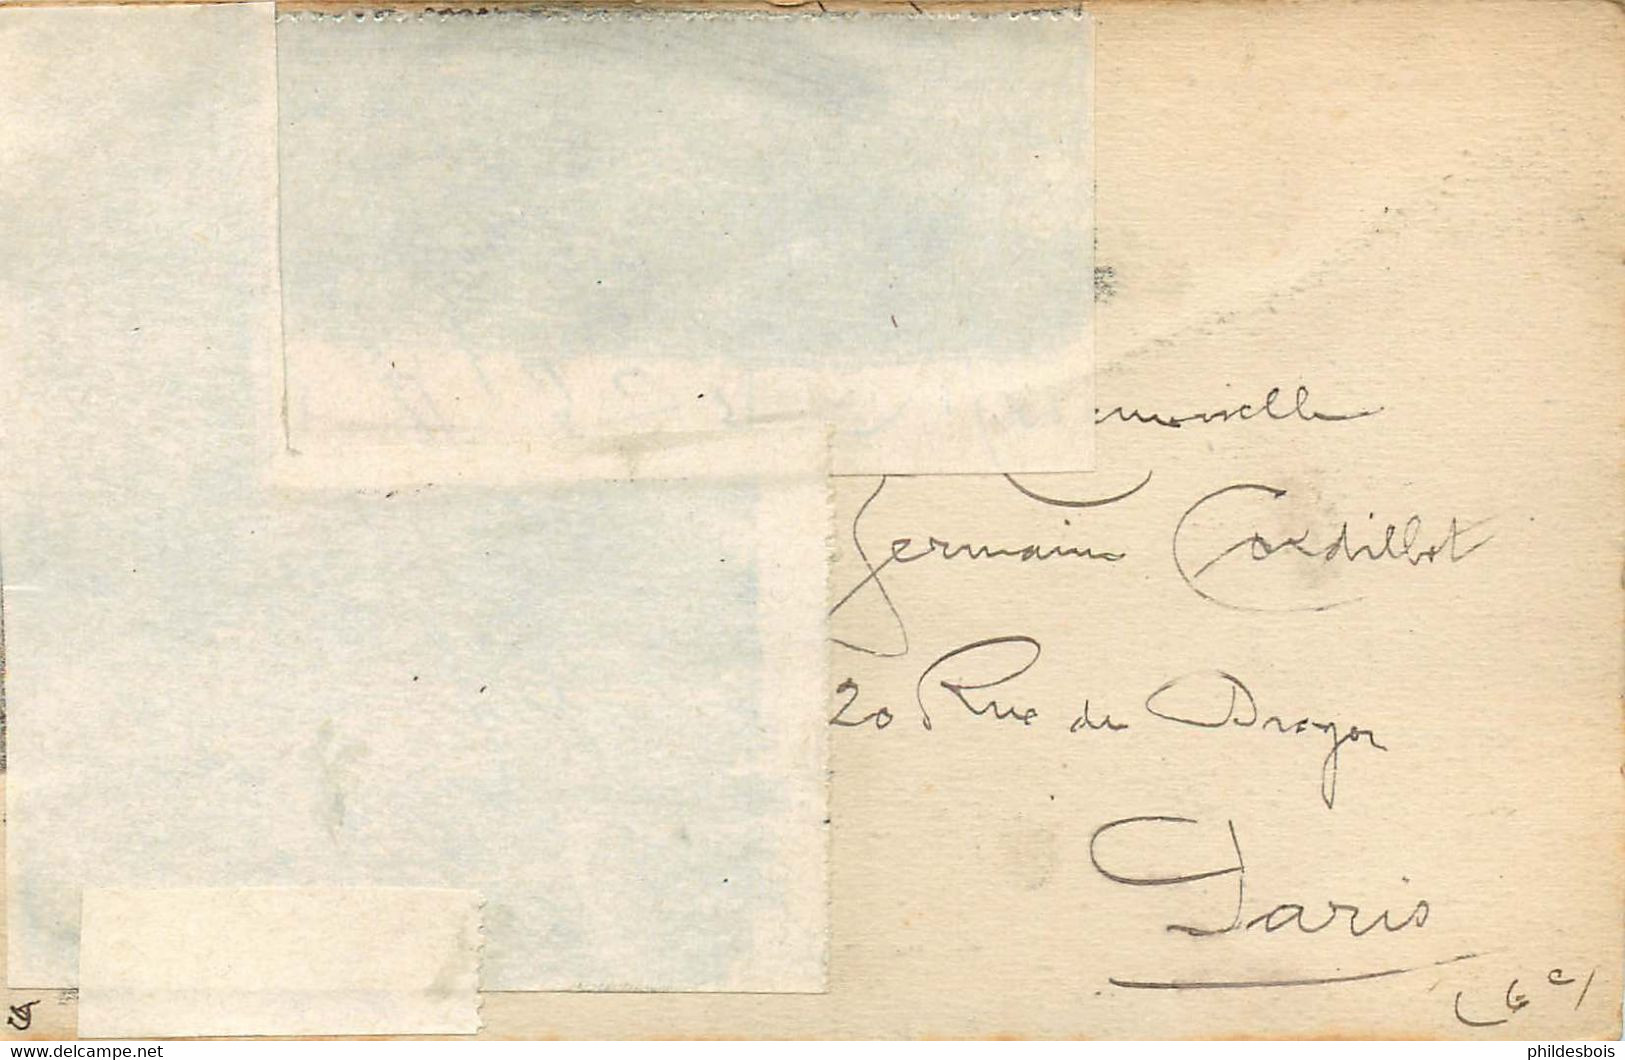 emoiselle
Germaine Cordillot
20 Rue du Dragon
Paris
(6e)
delcampe.net
phildesbois